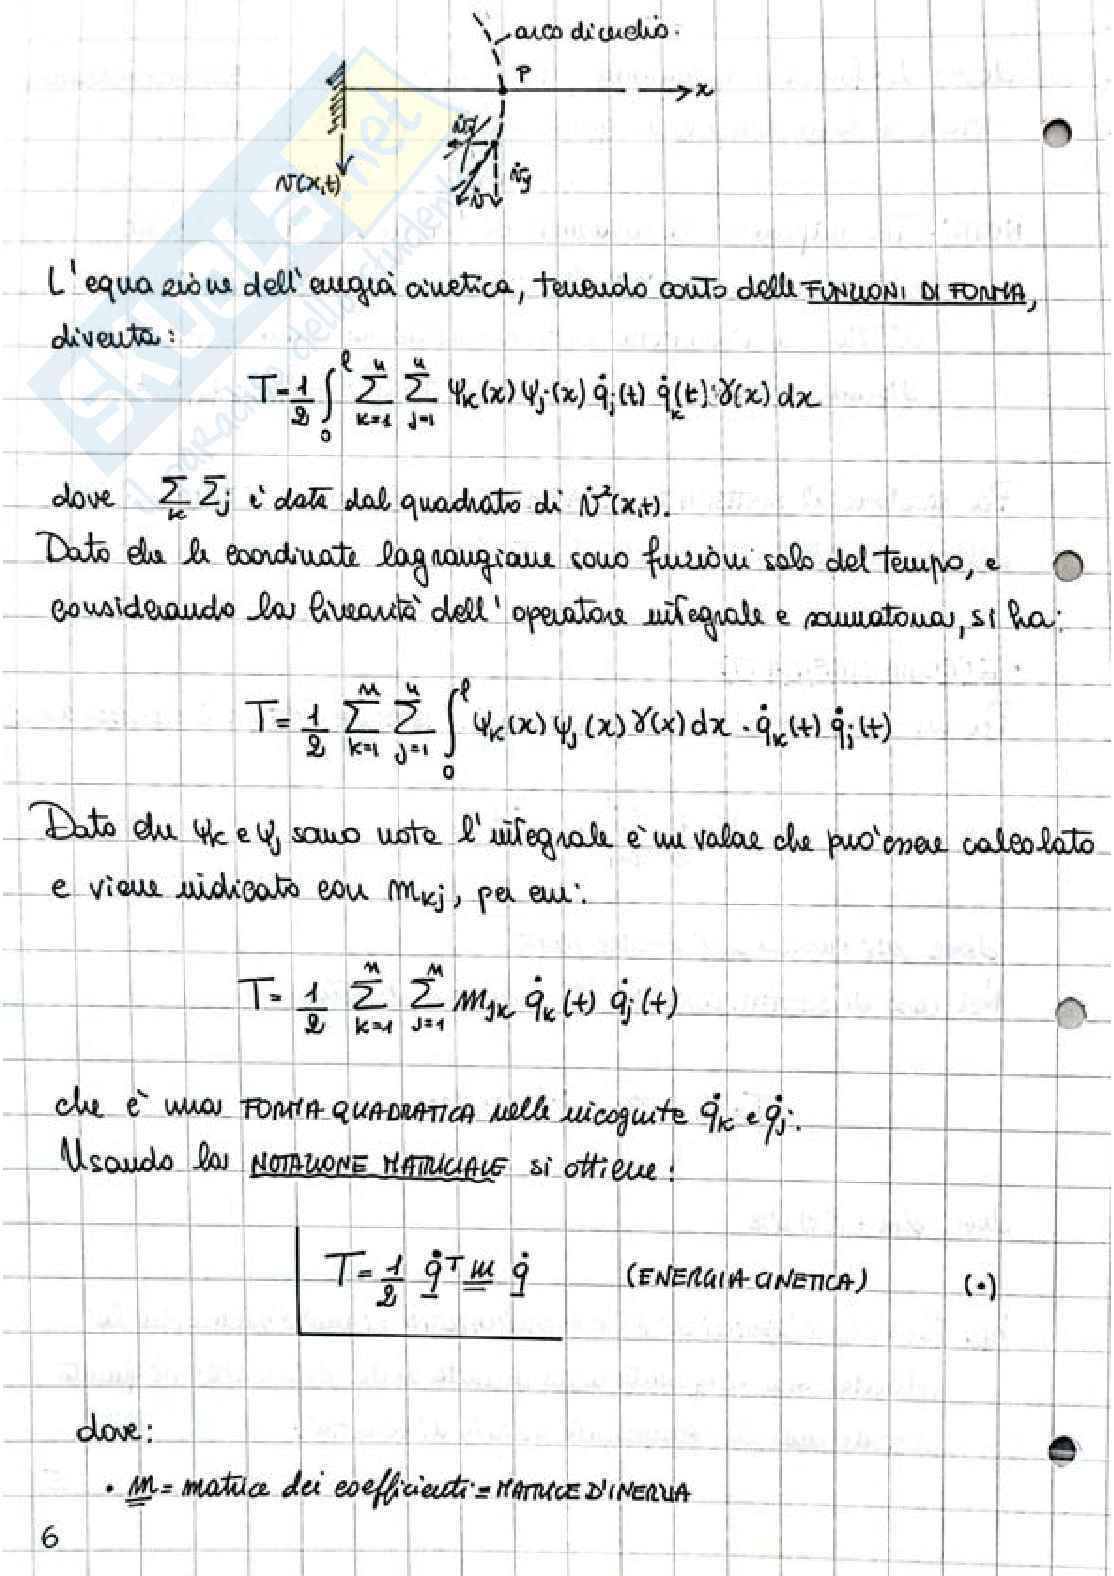 arco di cerchio.
P
x
v(x,t)
v̇y
v̇
L'equazione dell'energia cinetica, tenendo conto delle FUNZIONI DI FORMA,
diventa:
T = 1/2 ∫₀^ℓ Σ_{k=1}^n Σ_{j=1}^n ψk(x) ψj(x) q̇j(t) q̇k(t) γ(x) dx
dove Σk Σj è data dal quadrato di v̇²(x,t).
Dato che le coordinate lagrangiane sono funzioni solo del tempo, e
considerando la linearità dell'operatore integrale e sommatoria, si ha:
T = 1/2 Σ_{k=1}^n Σ_{j=1}^n ∫₀^ℓ ψk(x) ψj(x) γ(x) dx · q̇k(t) q̇j(t)
Dato che ψk e ψj sono note l'integrale è un valore che può essere calcolato
e viene indicato con mkj, per cui:
T = 1/2 Σ_{k=1}^n Σ_{j=1}^n mjk q̇k(t) q̇j(t)
che è una FORMA QUADRATICA nelle incognite q̇k e q̇j.
Usando la NOTAZIONE MATRICIALE si ottiene:
T = 1/2 q̇ᵀ m q̇ (ENERGIA CINETICA) (·)
dove:
· m = matrice dei coefficienti = MATRICE D'INERZIA
6
SKUOLA.net
il paradiso dello studente